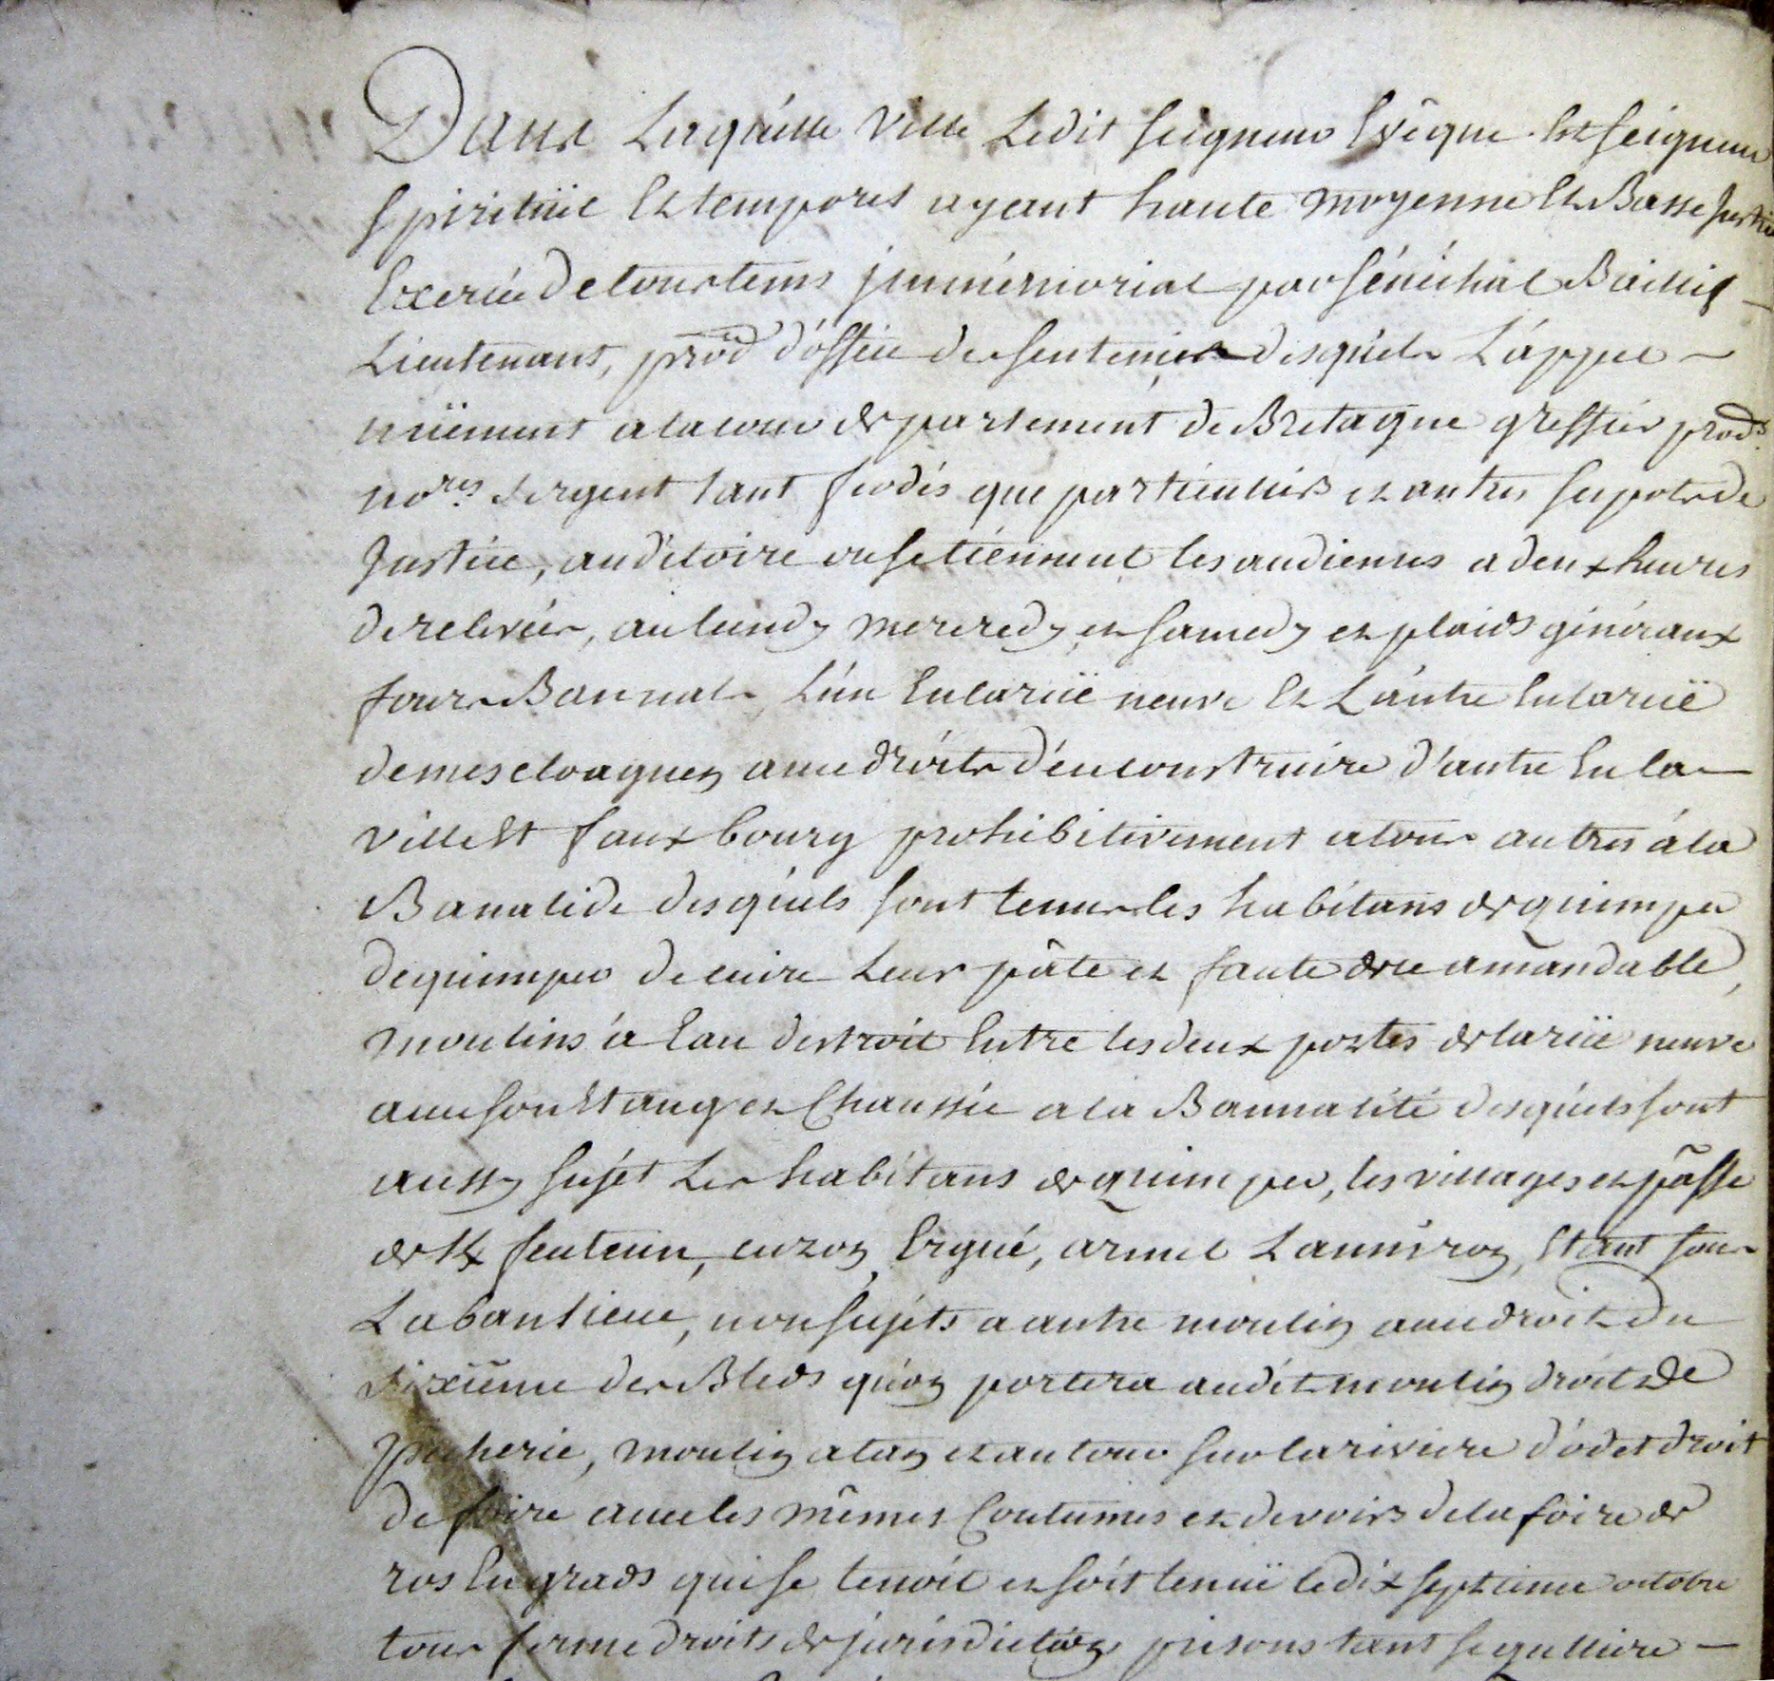 Dans Laquelle Ville Ledit seigneur Evêque Est seigneur
spirituël Et temporel ayant haute moyenne Et Basse Justice
Exercée de tous tems jmmémorial par sénéchal Baillif
Lieutenant, pro.d d'office des sentences desquels L'appel
nuëment a la cour de parlement de Bretagne greffier pro.ds
no.res sergent tant feodés que particuliers et autres supots de
Justice, auditoire ou se tiennent les audiences a deux heures
de relevée, au lundy mercredy et samedy et plaids généraux
fours Bannals, L'un En la ruë neuve Et L'autre En la ruë
de mescloaguen avec droits d'en construire d'autre En la
ville Et faux bourg prohibitivement a tous autres á la
Banalide desquels sont tenus les habitans de quimper
de quimper de cuire Leur pâte et faute de ce amandable,
moulins à Eau destroit Entre les deux portes de la ruë neuve
avec son Etang et Chaussée a la Bannalité desquels sont
aussy sujet Les habitans de quimper, les villages et pâsse
de Lok seuteun, cuzon, Ergué, armel Lanniron, Etant sous
La banlieue, non sujets a autre moulin avec droit du
sixième des Bleds qu'on portera audit moulin droit de
pecherie, moulin a tan et autour sur la riviere d'ódet droit
de foire avec les mêmes Coutumes et devoirs de la foire de
ros En grads qui se tenoit et soit tenuë le dix septieme octobre
tour ferme droits de jurisdiction prisons tant seculliere